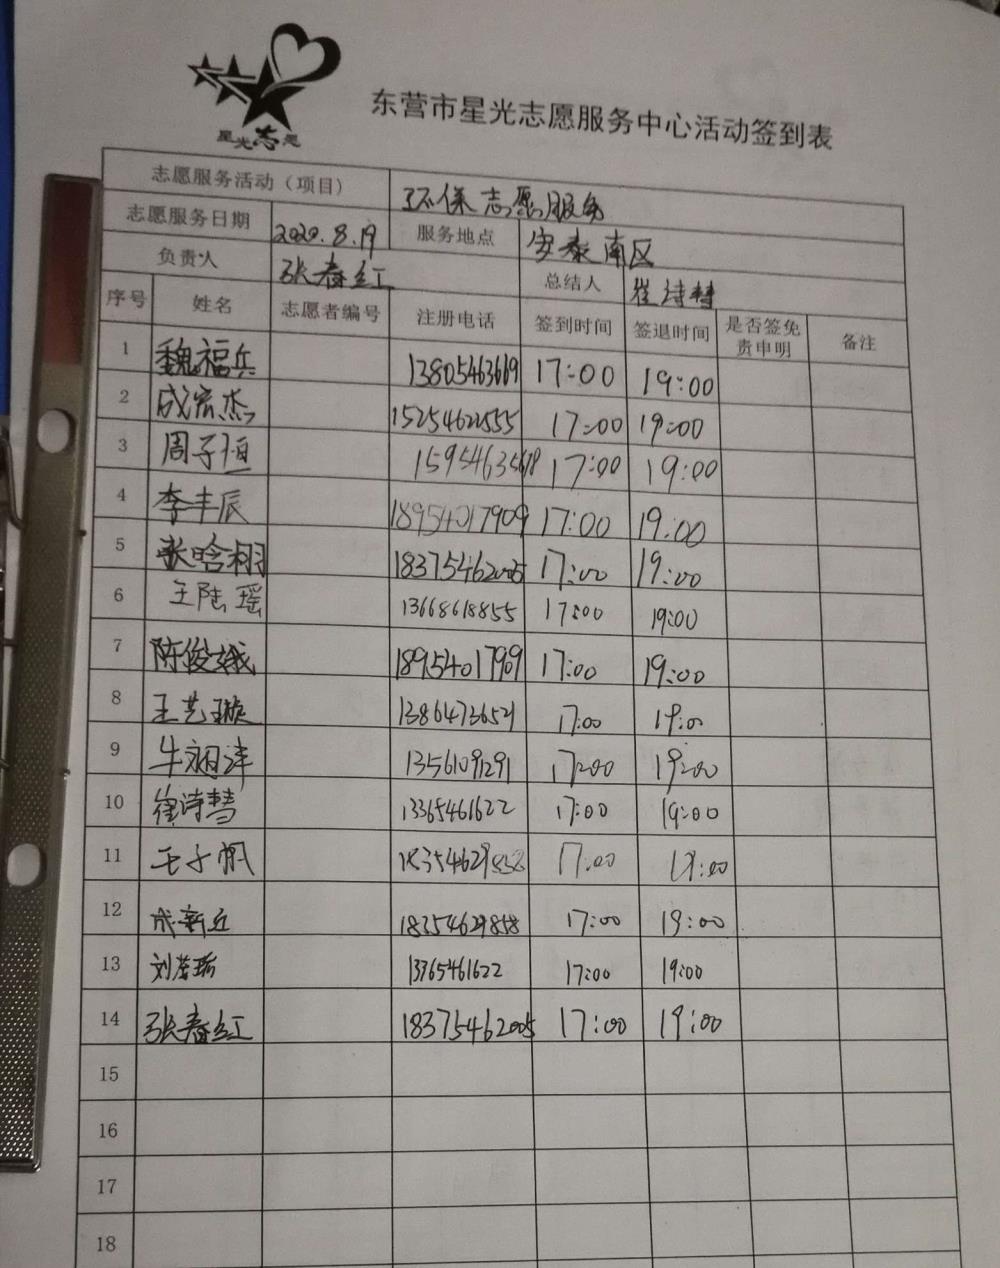 星光志愿
东营市星光志愿服务中心活动签到表
志愿服务活动（项目） 环保志愿服务
志愿服务日期 2020.8.19 服务地点 安泰南区
负责人 张春红 总结人 崔诗慧
序号 姓名 志愿者编号 注册电话 签到时间 签退时间 是否签免责申明 备注
1 魏福兵 13805463669 17:00 19:00
2 成宏杰 15254622555 17:00 19:00
3 周子恒 15954635678 17:00 19:00
4 李丰辰 18954017909 17:00 19:00
5 张晗栩 18375462005 17:00 19:00
6 王陆瑶 13668618855 17:00 19:00
7 陈俊娥 18954017909 17:00 19:00
8 王艺璇 13864736521 17:00 19:00
9 牛翊沣 13561091291 17:00 19:00
10 崔诗慧 13365461622 17:00 19:00
11 王子帆 18354629858 17:00 19:00
12 成新 18354629858 17:00 19:00
13 刘 瑶 13365461622 17:00 19:00
14 张春红 18375462005 17:00 19:00
15
16
17
18